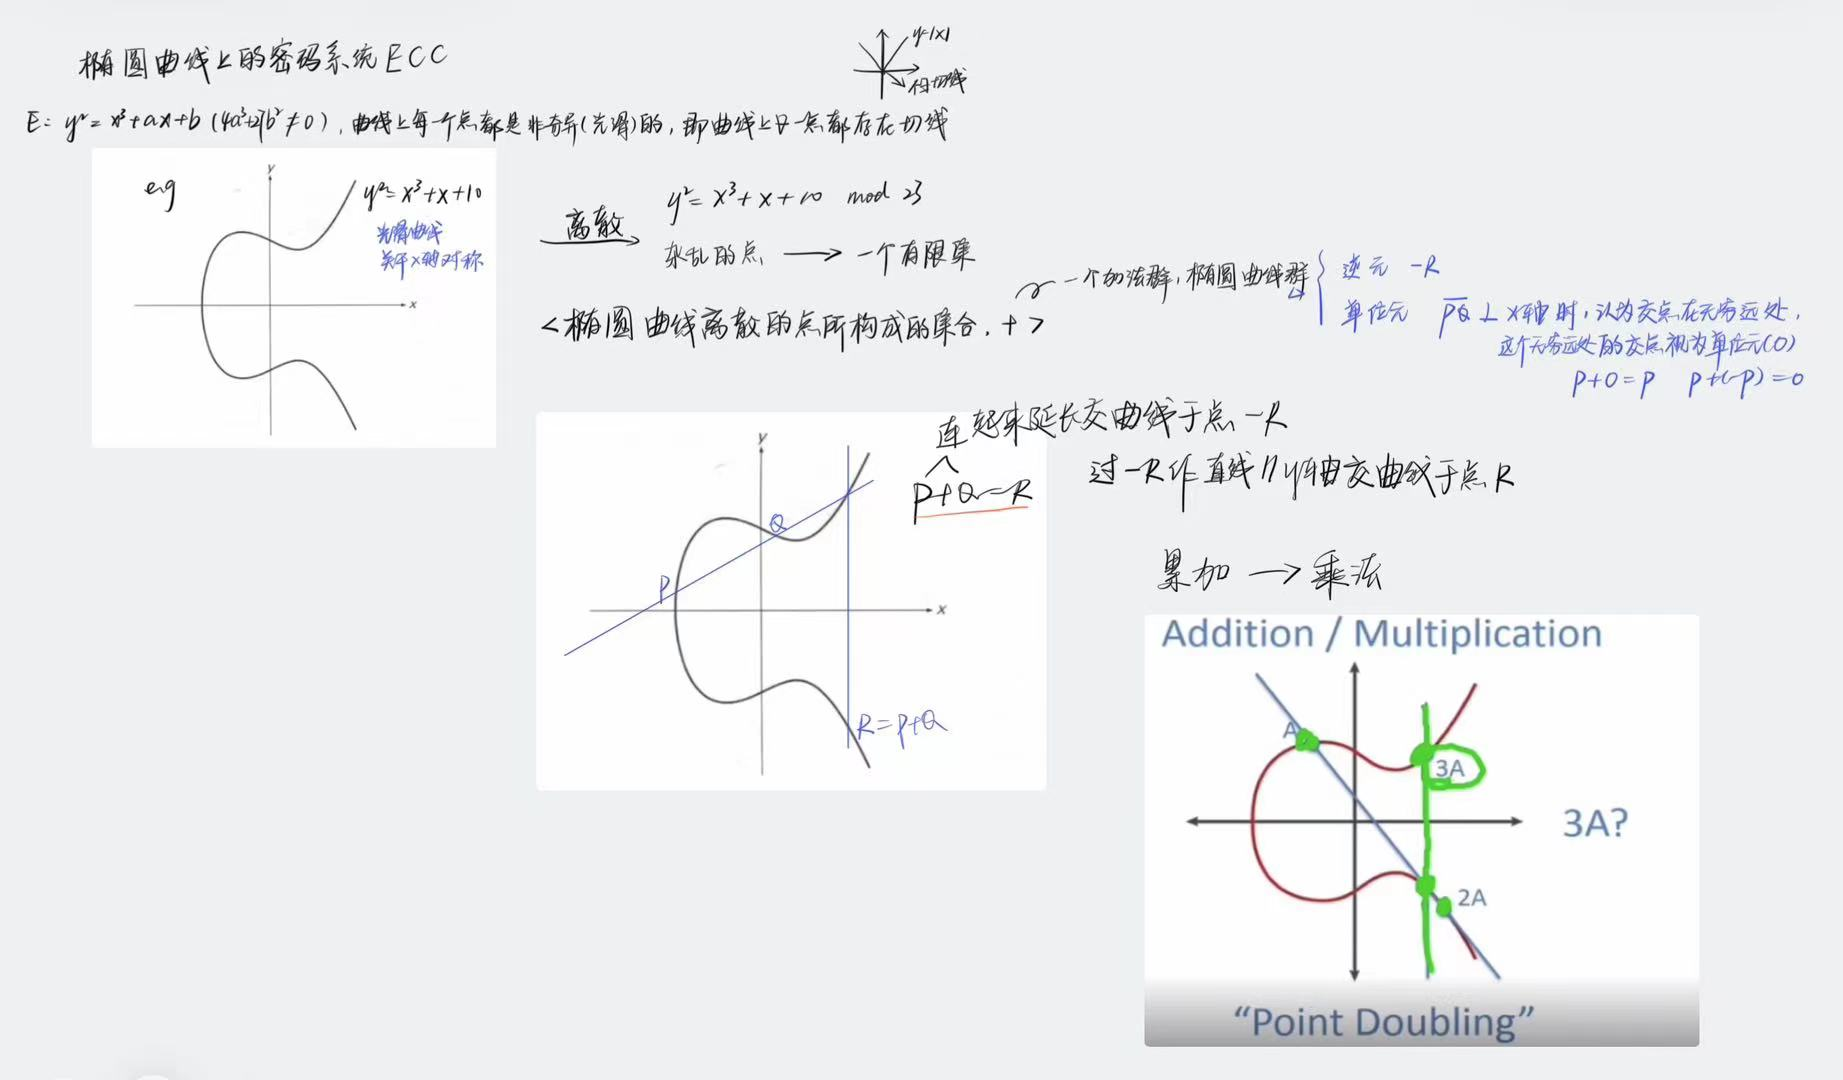 椭圆曲线上的密码系统ECC
y=|x|
切线
E: y²=x³+ax+b (4a³+27b²≠0), 曲线上每一个点都是非奇异(光滑)的, 即曲线上每一点都存在切线
eg
y
y²=x³+x+10
光滑曲线
关于x轴对称
x
离散
y²=x³+x+10 mod 23
杂乱的点 → 一个有限集
<椭圆曲线离散的点所构成的集合, +>
一个加法群, 椭圆曲线群
逆元 -R
单位元 PQ⊥x轴时, 认为交点在无穷远处,
这个无穷远处的交点视为单位元(O)
P+O=P P+(-P)=O
连起来延长交曲线于点-R
P+Q=R
过-R作直线//y轴交曲线于点R
y
Q
P
x
R=P+Q
累加 → 乘法
Addition / Multiplication
A
3A
3A?
2A
“Point Doubling”